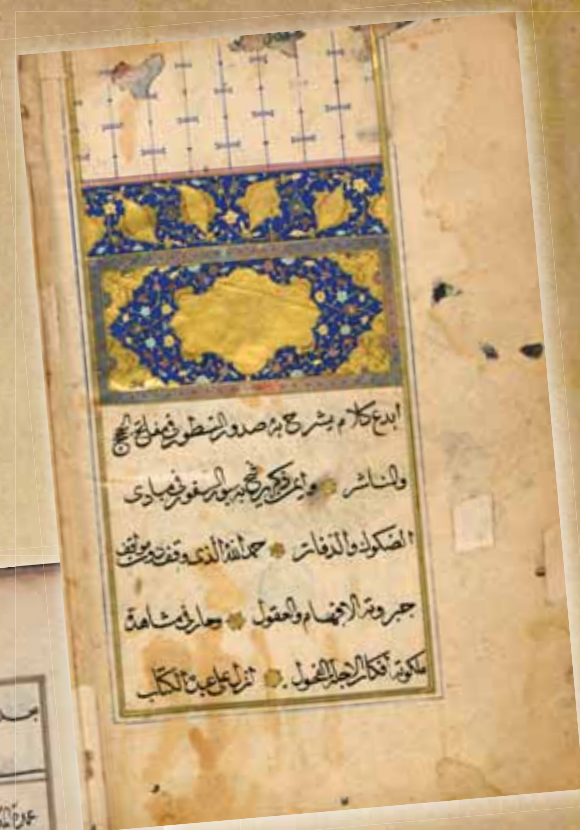 ابدع كلام يشرح به صدور السطور في مفاتح الحجج
والمناشر وابهى ذكر يرشح به سور السفور في مبادى
الصكوك والدفاتر حمد الله الذى وقف دون مواقف
جبروته الافهام والعقول وحار في مشاهدة
ملكوته افكار الاجلة الفحول انزل على عبده الكتاب